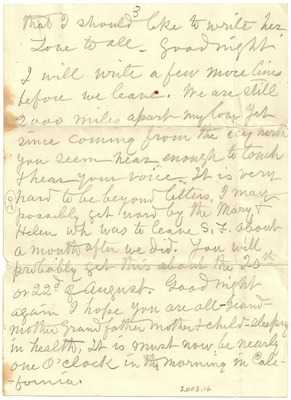 3
that I should like to write her
Love to all - Goodnight
I will write a few more lines
before we leave. We are still
2000 miles apart my love yet
since coming from the icy north
you seem near enough to touch
& hear your voice. It is very
hard to be beyond letters, I may
possibly get word by the Mary &
Helen wh was to leave S.F. about
a month after we did. You will
probably get this about the 20th
or 22d of August. Goodnight
again I hope you are all - grand-
mother grandfather mother & child - sleeping
in health. It is must now be nearly
one O'clock in the morning in Cali-
fornia.
2003.16